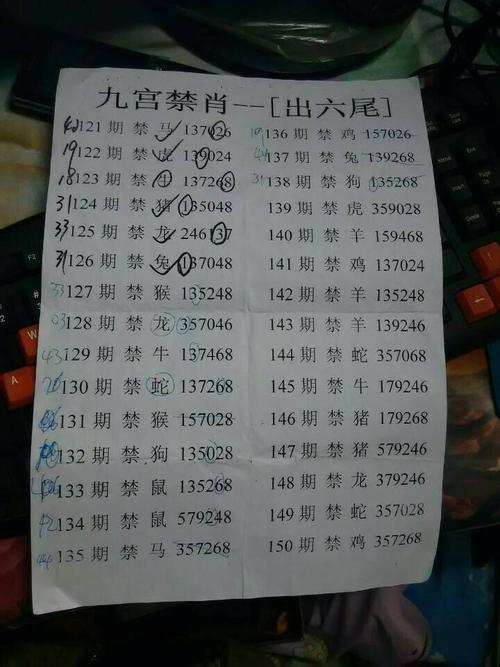 九宫禁肖--[出六尾]
42 121 期 禁 马 137026
19 122 期 禁 虎 139024
18 123 期 禁 牛 137268
31 124 期 禁 猪 135048
33 125 期 禁 龙 246137
31 126 期 禁 兔 137048
33 127 期 禁 猴 135248
03 128 期 禁 龙 357046
43 129 期 禁 牛 137468
26 130 期 禁 蛇 137268
131 期 禁 猴 157028
132 期 禁 狗 135028
133 期 禁 鼠 135268
42 134 期 禁 鼠 579248
44 135 期 禁 马 357268
19 136 期 禁 鸡 157026
44 137 期 禁 兔 139268
31 138 期 禁 狗 135268
139 期 禁 虎 359028
140 期 禁 羊 159468
141 期 禁 鸡 137024
142 期 禁 羊 135248
143 期 禁 羊 139246
144 期 禁 蛇 357068
145 期 禁 牛 179246
146 期 禁 猪 179268
147 期 禁 猪 579246
148 期 禁 龙 379246
149 期 禁 蛇 357028
150 期 禁 鸡 357268